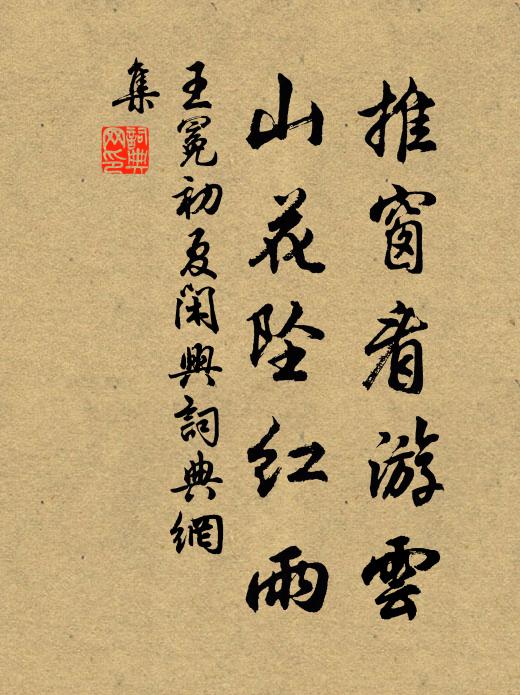 推窗看游雲
山花坠红雨
王冕初夏閑興詞典網
集
詞典
网印